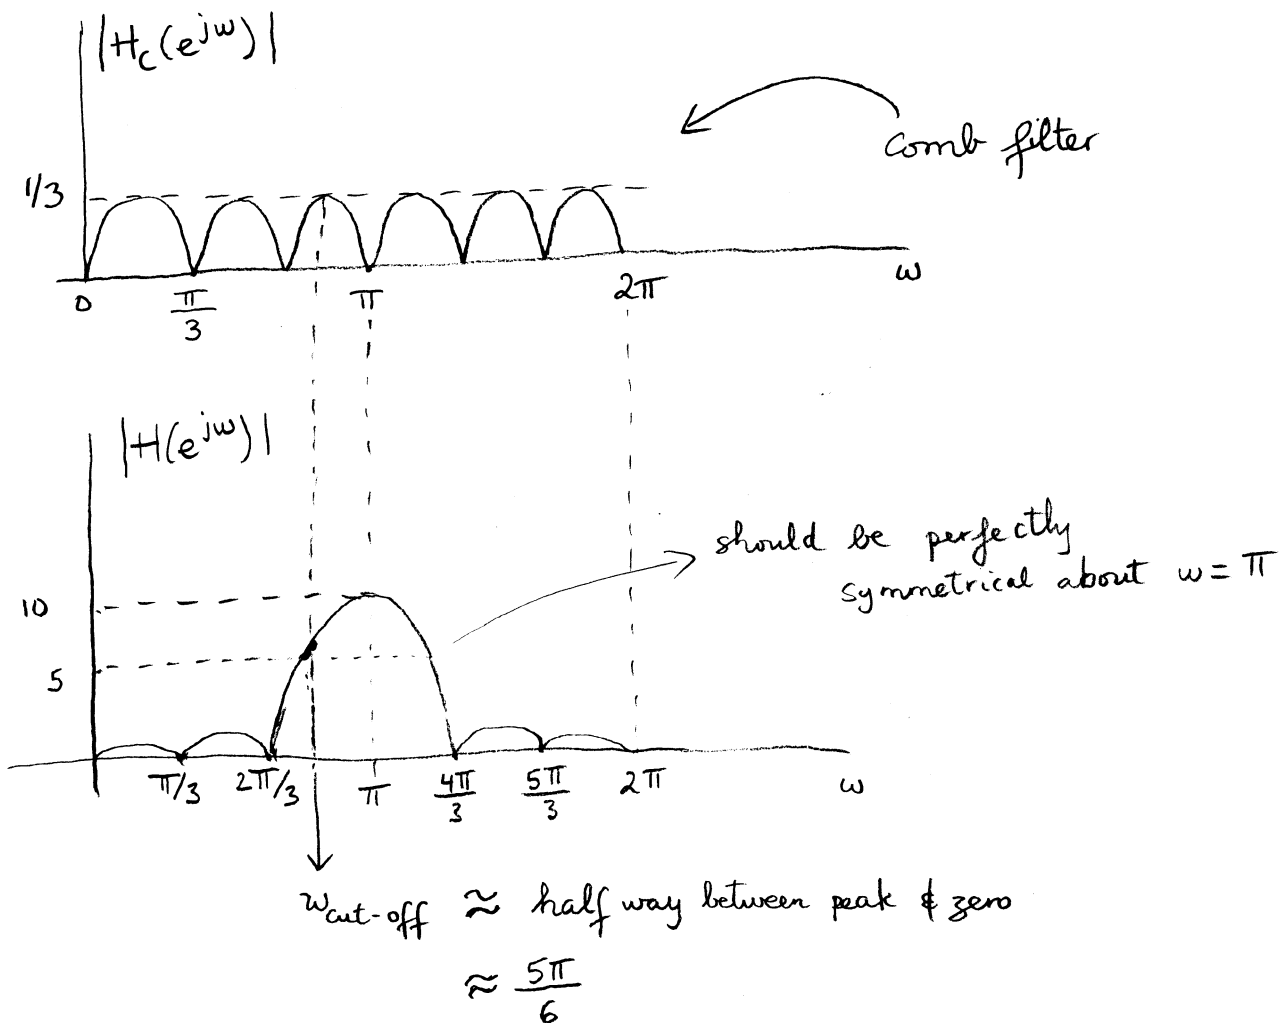 |H_c(e^{jω})|
Comb filter
1/3
0
π/3
π
2π
ω
|H(e^{jω})|
should be perfectly
symmetrical about ω = π
10
5
π/3
2π/3
π
4π/3
5π/3
2π
ω
ω_cut-off ≈ half way between peak & zero
≈ 5π/6